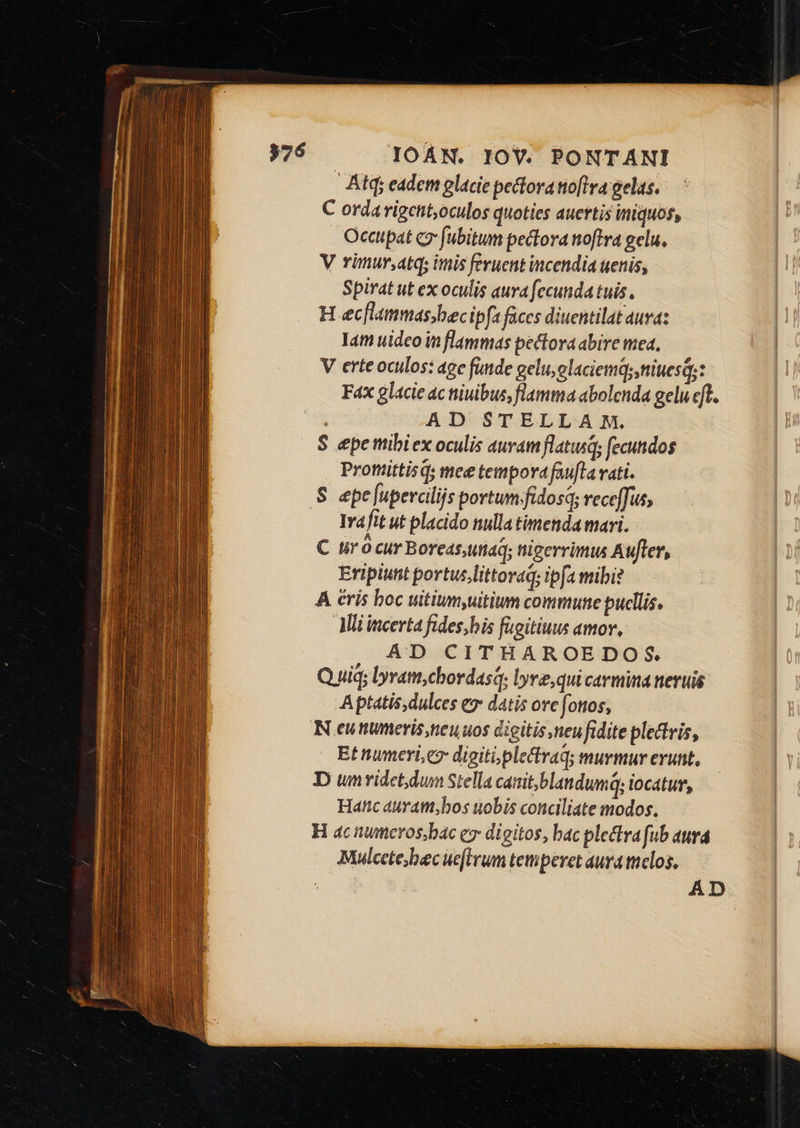 376 IOAN. IOV. PONTANI
Atq; eadem glacie pectora noſtra gelas.
C orda rigent, oculos quoties auertis iniquos,
Occupat & ſubitum pectora noſtra gelu.
V rimur, atq; imis feruent incendia uenis,
Spirat ut ex oculis aura ſecunda tuis.
H æc flammas, hæc ipſa faces diuentilat aura:
Iam uideo in flammas pectora abire mea.
V erte oculos: age funde gelu, glaciemq́;, niuesq́;:
Fax glacie ac niuibus, flamma abolenda gelu eſt.
AD STELLAM.
S æpe mihi ex oculis auram flatusq́; ſecundos
Promittis q́; meæ tempora fauſta rati.
S æpe ſupercilijs portum, fidosq́; receſſus,
Ira ſit ut placido nulla timenda mari.
C ur ò cur Boreas, unaq́; nigerrimus Auſter,
Eripiunt portus, littoraq́; ipſa mihi?
A ëris hoc uitium, uitium commune puellis.
Illi incerta fides, his fugitiuus amor.
AD CITHAROEDOS.
Q uiq́; lyram, chordasq́; lyræ, qui carmina neruis
Aptatis, dulces & datis ore ſonos,
N eu numeris, neu uos digitis, neu fidite plectris,
Et numeri, & digiti, plectraq́; murmur erunt.
D um ridet, dum Stella canit, blandumq́; iocatur,
Hanc auram, hos uobis conciliate modos.
H ac numeros, hac & digitos, hac plectra ſub aura
Mulcete, hæc ueſtrum temperet aura melos.
AD